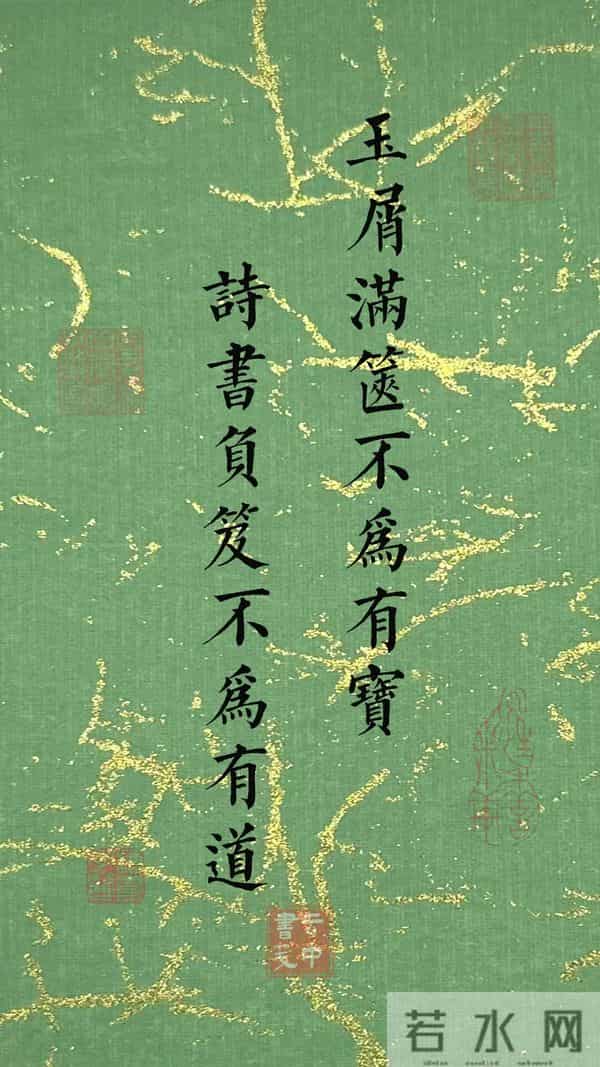 玉屑滿篋不爲有寶
詩書負笈不爲有道
若水网